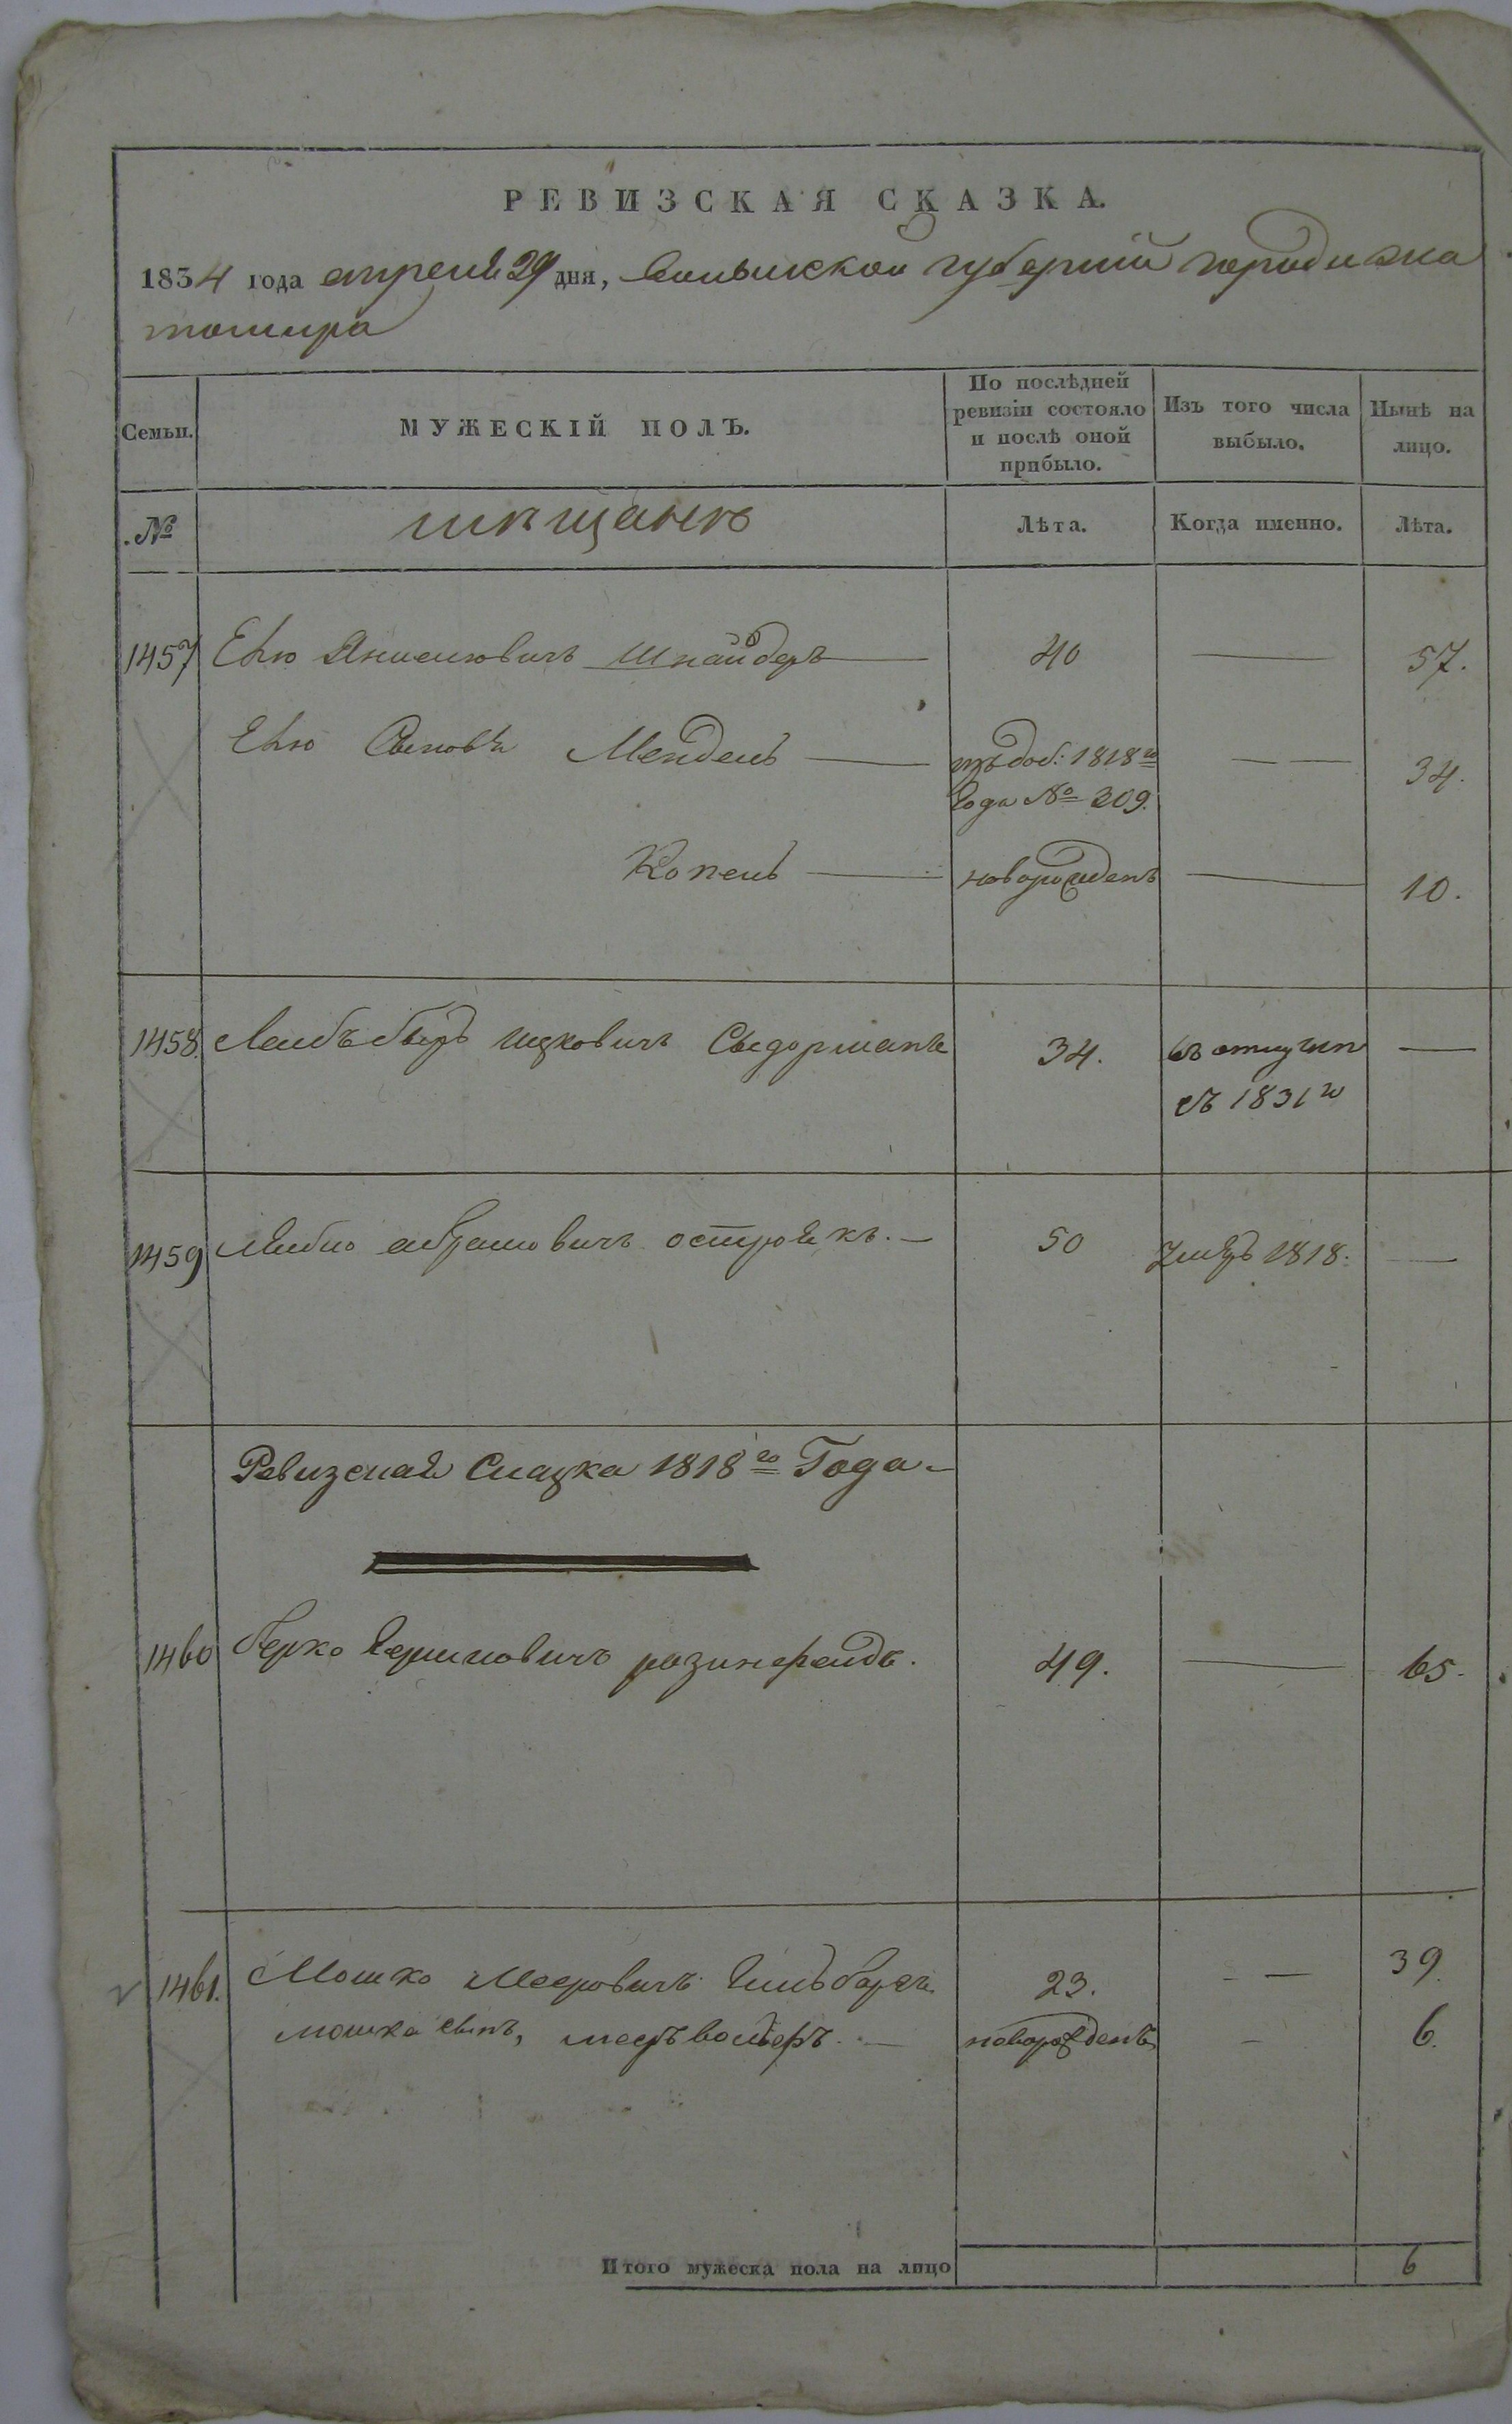 РЕВИЗСКАЯ СКАЗКА.
1834 года апреля 29 дня, Волынской губернiи города Жи
томира
Семьи.
МУЖЕСКIЙ ПОЛЪ.
По послѣдней
ревизiи состояло
и послѣ оной
прибыло.
Изъ того числа
выбыло.
Нынѣ на
лицо.
№
мѣщанъ
Лѣта.
Когда именно.
Лѣта.
1457 Ево Янкелювичъ Шнайдеръ 40 — 57.
Ево Сыновья Мендель — изъ доб: 1818го — — 34.
Года № 309.
Копель — новорожденъ — 10.
1458. Лейбъ беръ Ицковичъ 34. въ отлучки —
съ 1831го
1459 Лейбиш абрамовичъ острякъ. — 50 умеръ 1818. —
Ревизская Сказка 1818го Года —
1460 Берко Гершковичъ розинфельдъ. 49. — 65.
1461. Мошко Мееровичъ Гильбергъ. 23. — — 39.
мошка сынъ, меер вольфъ. — новорожденъ — 6.
Итого мужеска пола на лицо 6